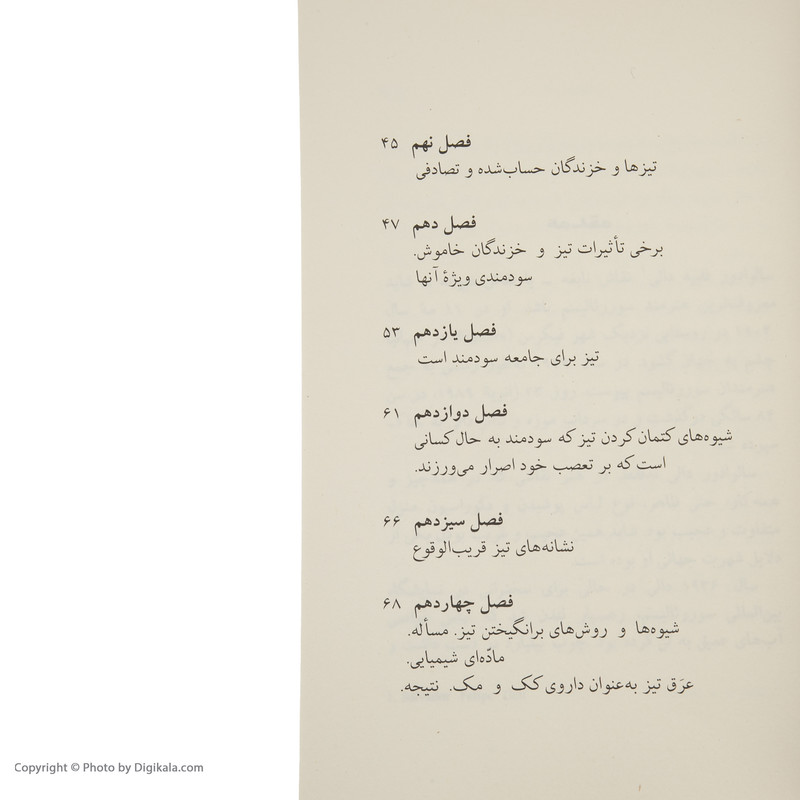 فصل نهم ۴۵
تیزها و خزندگان حساب‌شده و تصادفی
فصل دهم ۴۷
برخی تأثیرات تیز و خزندگان خاموش.
سودمندی ویژهٔ آنها
فصل یازدهم ۵۳
تیز برای جامعه سودمند است
فصل دوازدهم ۶۱
شیوه‌های کتمان کردن تیز که سودمند به حال کسانی
است که بر تعصب خود اصرار می‌ورزند.
فصل سیزدهم ۶۶
نشانه‌های تیز قریب‌الوقوع
فصل چهاردهم ۶۸
شیوه‌ها و روش‌های برانگیختن تیز. مسأله.
مادّه‌ای شیمیایی.
عرَق تیز به‌عنوان داروی کک و مک. نتیجه.
Copyright © Photo by Digikala.com